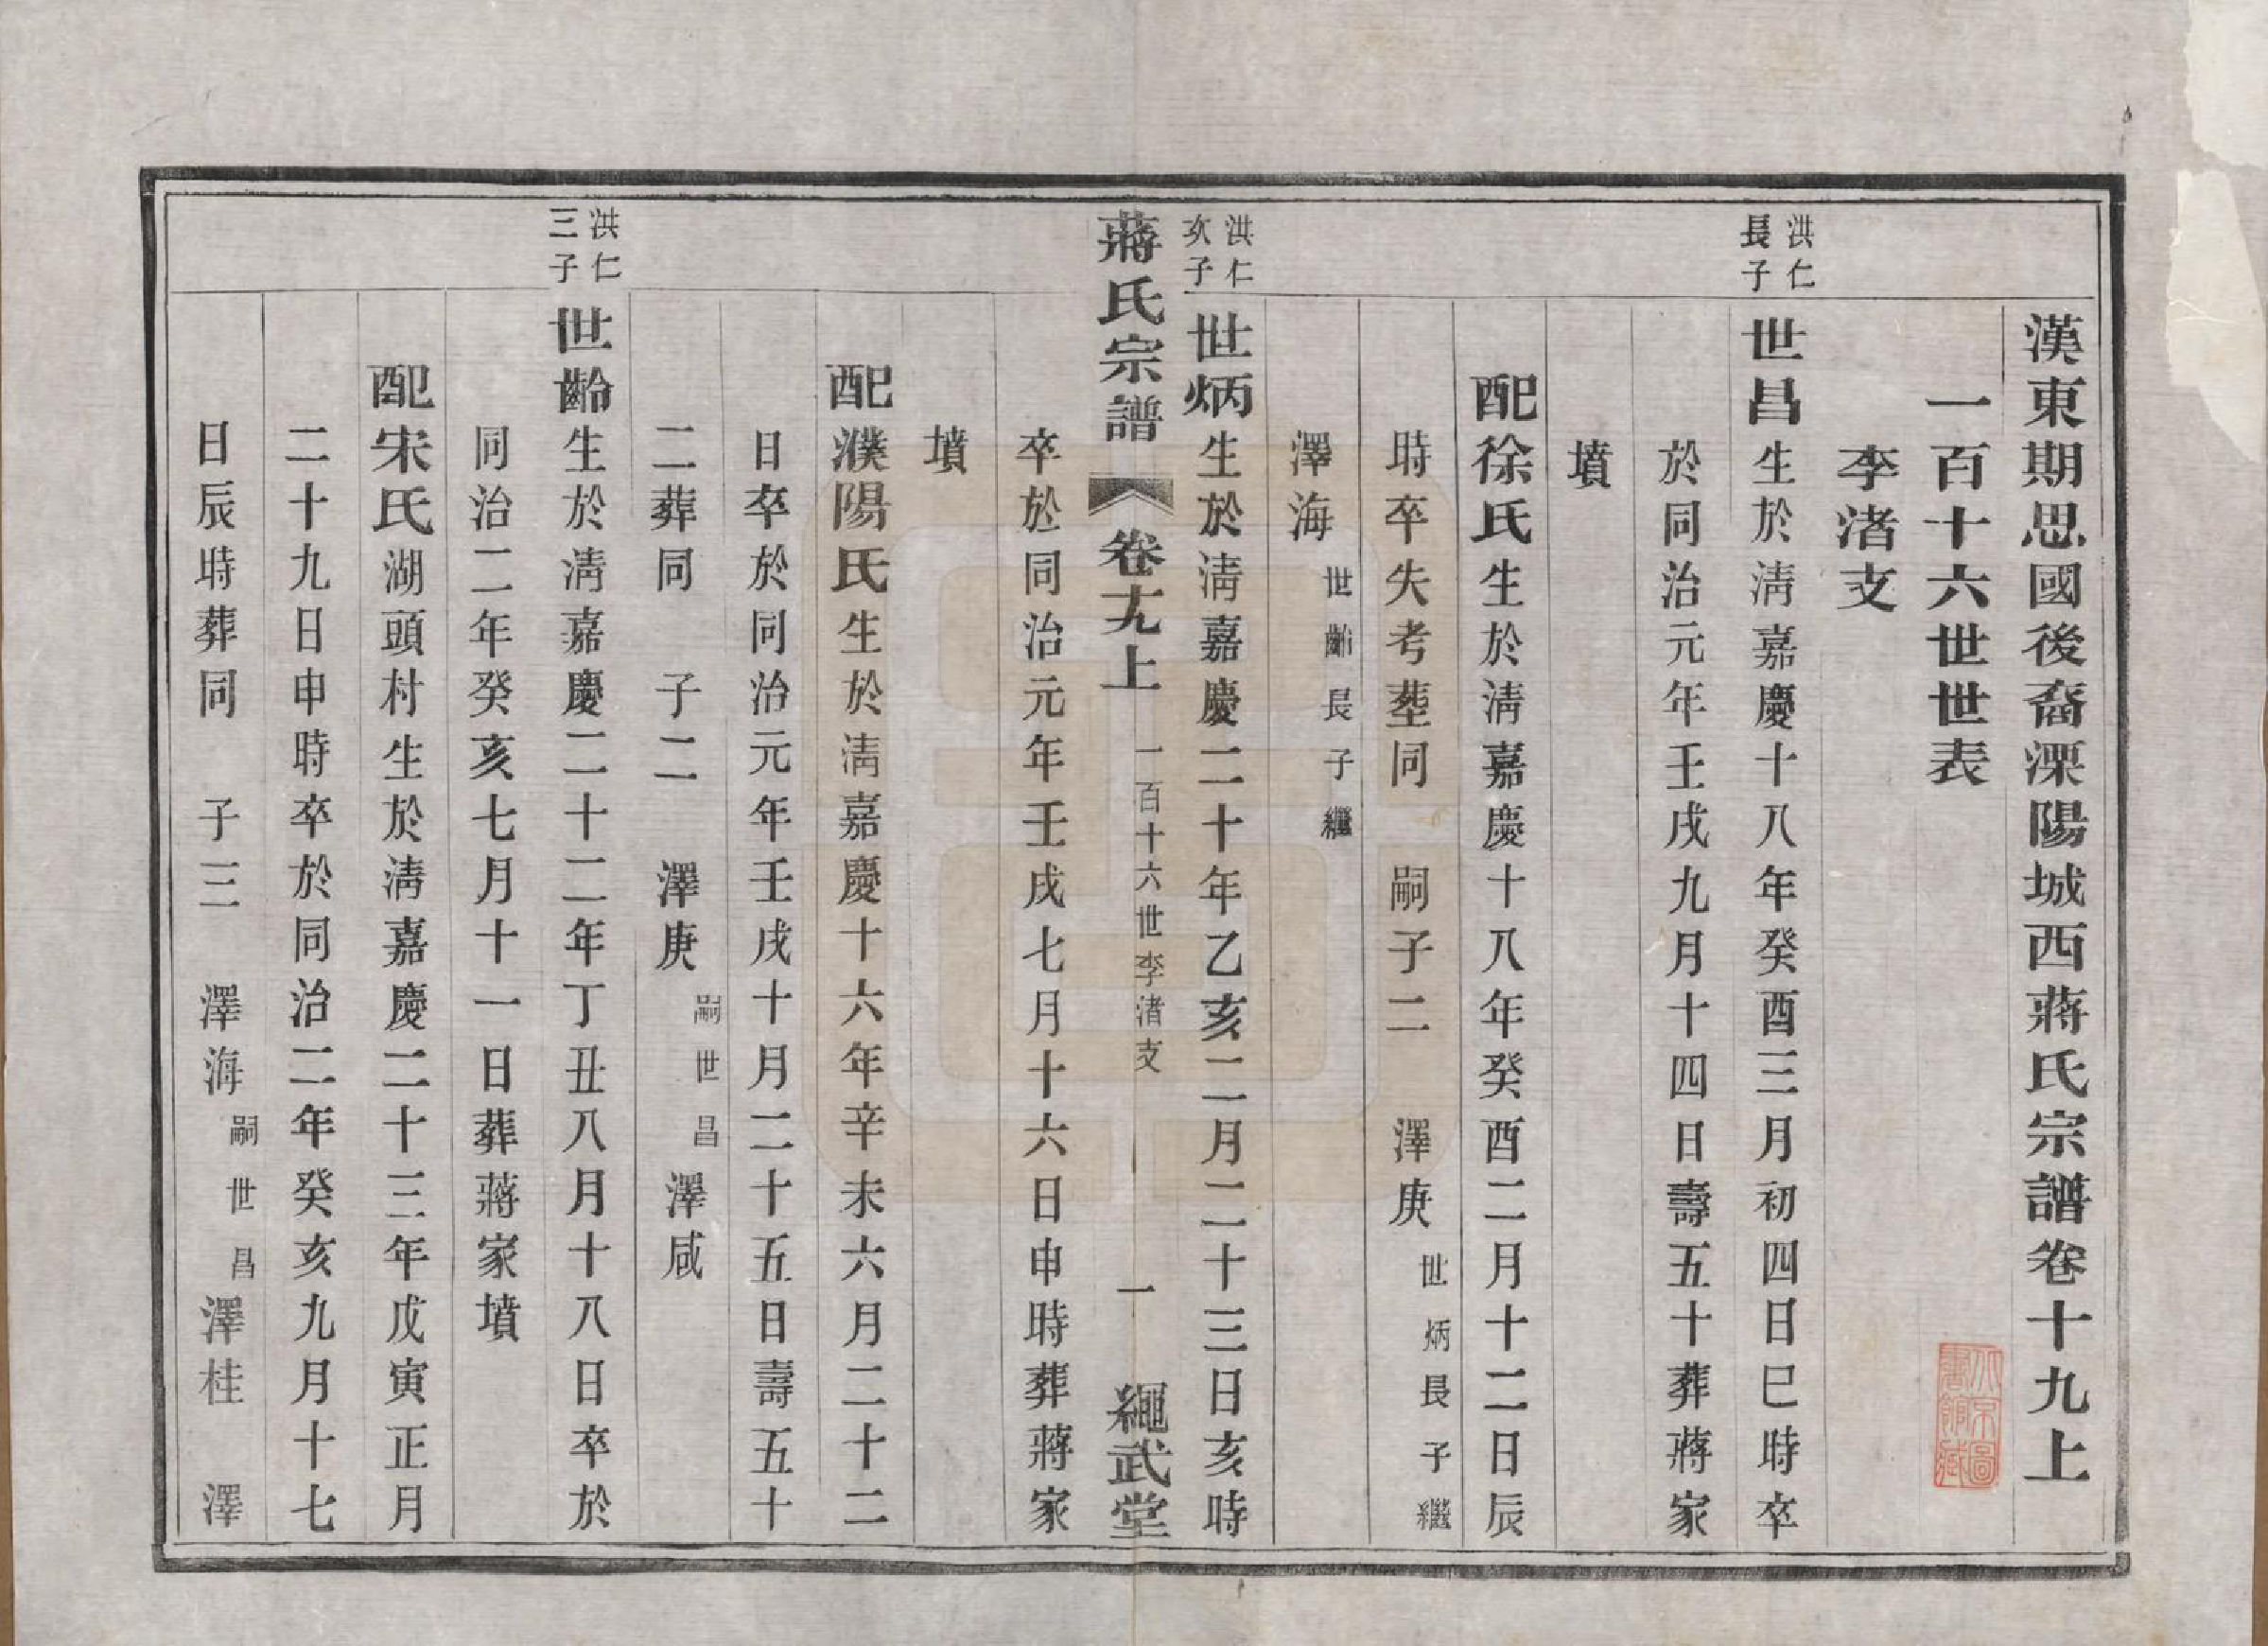 漢東期思國後裔溧陽城西蔣氏宗譜卷十九上
一百十六世世表
李渚支
洪仁長子
世昌生於淸嘉慶十八年癸酉三月初四日巳時卒
於同治元年壬戌九月十四日壽五十葬蔣家
墳
配徐氏生於淸嘉慶十八年癸酉二月十二日辰
時卒失考塟同 嗣子二 澤庚世炳長子繼
澤海世齡長子繼
洪仁次子
世炳生於淸嘉慶二十年乙亥二月二十三日亥時
蔣氏宗譜 卷十九上 一百十六世李渚支 一 繩武堂
卒於同治元年壬戌七月十六日申時葬蔣家
墳
配濮陽氏生於淸嘉慶十六年辛未六月二十二
日卒於同治元年壬戌十月二十五日壽五十
二葬同 子二 澤庚嗣世昌 澤咸
洪仁三子
世齡生於淸嘉慶二十二年丁丑八月十八日卒於
同治二年癸亥七月十一日葬蔣家墳
配宋氏湖頭村生於淸嘉慶二十三年戊寅正月
二十九日申時卒於同治二年癸亥九月十七
日辰時葬同 子三 澤海嗣世昌 澤桂 澤